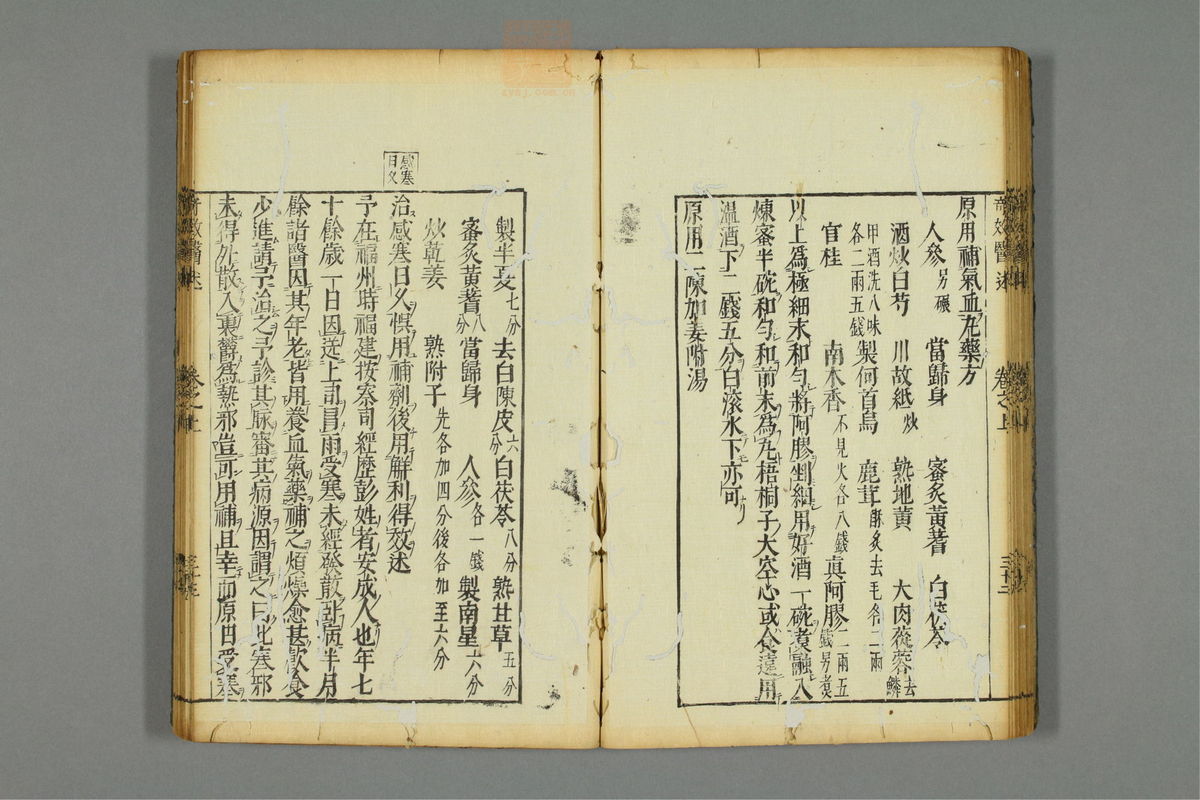 原用補氣血丸藥方
人參另碾 當歸身 蜜炙黃蓍 白茯苓
酒炒白芍 川故紙炒 熟地黃 大肉蓯蓉去鱗
甲酒洗八味各二兩五錢 製何首烏 鹿茸酥炙去毛各二兩
官桂 南木香不見火各八錢 真阿膠二兩五錢另煑
以上為極細末和勻將阿膠剉細用好酒一碗煑融入
煉蜜半碗和勻和前末為丸梧桐子大空心或食遠用
溫酒下二錢五分白滾水下亦可
原用二陳加姜附湯
奇效醫述 卷之上
製半夏七分 去白陳皮六分 白茯苓八分 熟甘草五分
蜜炙黃蓍八分 當歸身 人參各一錢 製南星六分
炒乾姜 熟附子先各加四分後各加至六分
感寒日久
治感寒日久悞用補劑後用解利得效述
予在福州時福建按察司經歷彭姓者安成人也年七
十餘歲一日因送上司冒雨受寒未經發散卧病半月
餘諸醫因其年老皆用養血氣藥補之煩燥愈甚飲食
少進請予治之予診其脉審其病源因謂之曰此寒邪
未得外散入裏鬱為熱邪豈可用補且幸而原日受寒